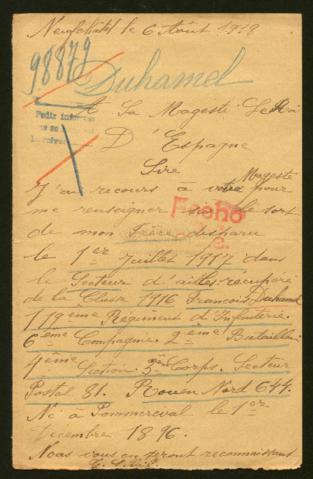 Neufchatel le 6 Août 1919
98879
Duhamel
A Sa Mageste Le Roi
D'Espagne
Pedir
Sire
J'ai recours à votre Mageste pour
me renseigner le sort
Fecho
de mon Frère disparu
le 1er Juillet 1917 dans
le Secteur d'ailles recuperé
de la Classe 1916 François Duhamel
119eme Regiment d'Infanterie
6eme Compagnie 2eme Bataillon
4eme Section 3eme Corps. Secteur
Postal 81. Rouen Nord 644.
Né à Pommereval le 1er
Decembre 1896.
Nous vous en seront reconnaissant